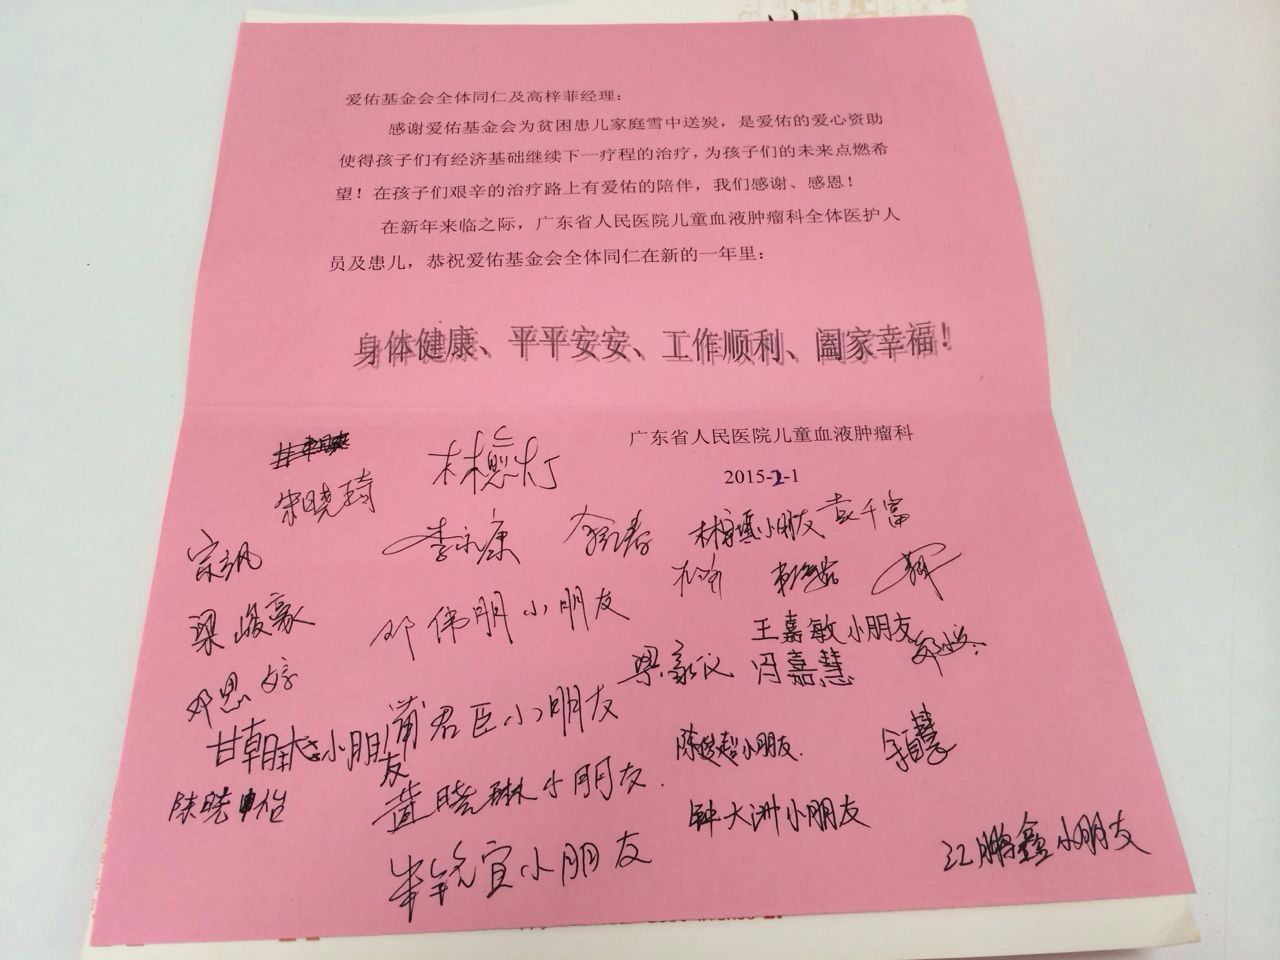 爱佑基金会全体同仁及高梓菲经理：
感谢爱佑基金会为贫困患儿家庭雪中送炭，是爱佑的爱心资助
使得孩子们有经济基础继续下一疗程的治疗，为孩子们的未来点燃希
望！在孩子们艰辛的治疗路上有爱佑的陪伴，我们感谢、感恩！
在新年来临之际，广东省人民医院儿童血液肿瘤科全体医护人
员及患儿，恭祝爱佑基金会全体同仁在新的一年里：
身体健康、平平安安、工作顺利、阖家幸福！
广东省人民医院儿童血液肿瘤科
2015-2-1
宋晓琦
林懋灯
小朋友
袁千富
李永康
梁峻豪
邓伟朋小朋友
王嘉敏小朋友
邓思婷
冯嘉慧
蒲君臣小朋友
小朋友
陈俊超小朋友
黄晓琳小朋友
钟大洲小朋友
宜小朋友
江鹏鑫小朋友